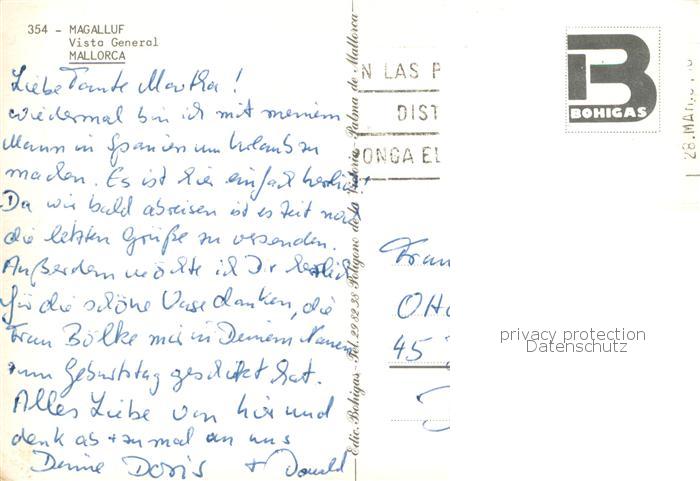 354 - MAGALLUF
Vista General
MALLORCA
Liebe Tante Martha!
wiedermal bin ich mit meinem
Mann in Spanien um Urlaub zu
machen. Es ist hier einfach herrlich.
Da wir bald abreisen ist es Zeit noch
die letzten Grüße zu versenden.
Außerdem möchte ich Dir herzlich
für die schöne Vase danken, die
Frau Bölke mir in Deinem Namen
zum Geburtstag geschickt hat.
Alles Liebe von hier und
denk ab + zu mal an uns
Deine Doris + Donald
Edic. Bohigas - Tel. 29 02 33 Polígono de la Victoria - Palma de Mallorca
N LAS P
DIST
ONGA EL
BOHIGAS
28.MAR.
Frau
Otto
45
privacy protection
Datenschutz